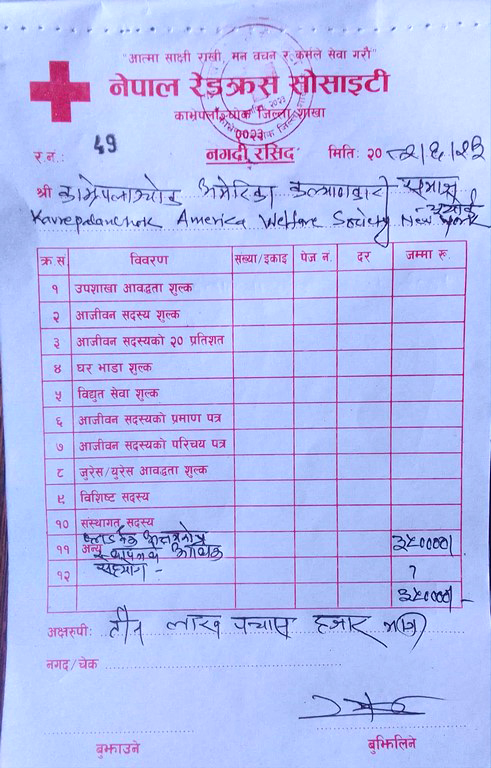 "आत्मा साक्षी राखी, मन वचन र कर्मले सेवा गरौं"
नेपाल रेडक्रस सोसाइटी
काभ्रेपलाञ्चोक जिल्ला शाखा
००२३
र.नं.: 49 नगदी रसिद मिति: २०८१/६/२६
श्री काभ्रेपलाञ्चोक अमेरिका कल्याणकारी समाज
Kavrepalanchok America Welfare Society New York
क्र सं विवरण संख्या/इकाइ पेज नं. दर जम्मा रू.
१ उपशाखा आवद्धता शुल्क
२ आजीवन सदस्य शुल्क
३ आजीवन सदस्यको २० प्रतिशत
४ घर भाडा शुल्क
५ विद्युत सेवा शुल्क
६ आजीवन सदस्यको प्रमाण पत्र
७ आजीवन सदस्यको परिचय पत्र
८ जुरेस/युरेस आवद्धता शुल्क
९ विशिष्ट सदस्य
१० संस्थागत सदस्य
११ अन्य ३५००००।
१२ सहयोग -
३५००००।-
अक्षरुपी: तीन लाख पचास हजार मात्र
नगद/चेक
बुझाउने बुझिलिने